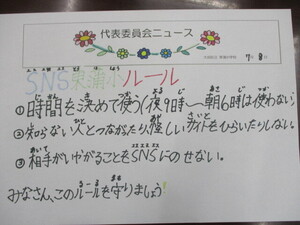 代表委員会ニュース
7月8日
SNS東浦小ルール
①時間を決めて使う(夜9時〜朝6時は使わない)
②知らない人とつながったり、怪しいサイトをひらいたりしない。
③相手がいやがることをSNSにのせない。
みなさん、このルールを守りましょう!